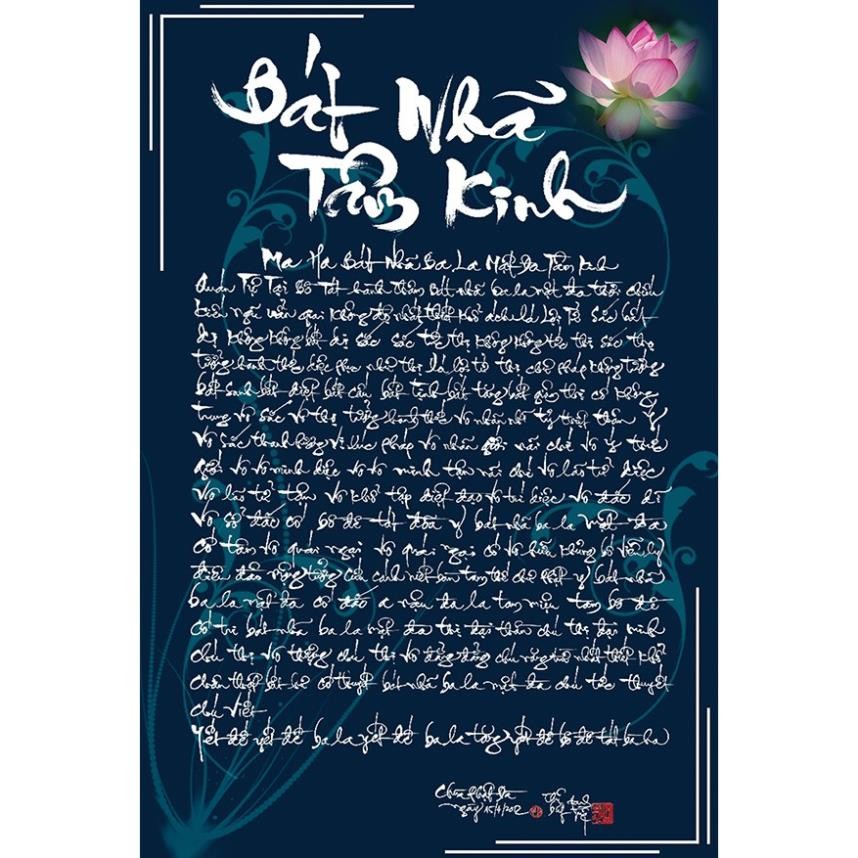 Bát Nhã
Tâm Kinh
Ma Ha Bát Nhã Ba La Mật Đa Tâm Kinh
Quán Tự Tại Bồ Tát hành thâm Bát nhã ba la mật đa thời chiếu
kiến ngũ uẩn giai không độ nhất thiết khổ ách Xá Lợi Tử sắc bất
dị không không bất dị sắc sắc tức thị không không tức thị sắc thọ
tưởng hành thức diệc phục như thị Xá lợi tử thị chư pháp không tướng
bất sanh bất diệt bất cấu bất tịnh bất tăng bất giảm thị cố không
trung vô sắc vô thọ tưởng hành thức vô nhãn nhĩ tỷ thiệt thân ý
vô sắc thanh hương vị xúc pháp vô nhãn giới nãi chí vô ý thức
giới vô vô minh diệc vô vô minh tận nãi chí vô lão tử diệc
vô lão tử tận vô khổ tập diệt đạo vô trí diệc vô đắc dĩ
vô sở đắc cố bồ đề tát đỏa y bát nhã ba la mật đa
cố tâm vô quái ngại vô quái ngại cố vô hữu khủng bố viễn ly
điên đảo mộng tưởng cứu cánh niết bàn tam thế chư Phật y bát nhã
ba la mật đa cố đắc a nậu đa la tam miệu tam bồ đề
cố tri bát nhã ba la mật đa thị đại thần chú thị đại minh
chú thị vô thượng chú thị vô đẳng đẳng chú năng trừ nhất thiết khổ
chân thật bất hư cố thuyết bát nhã ba la mật đa chú tức thuyết
chú viết
Yết đế yết đế ba la yết đế ba la tăng yết đế bồ đề tát bà ha
ngày 15/4/2012